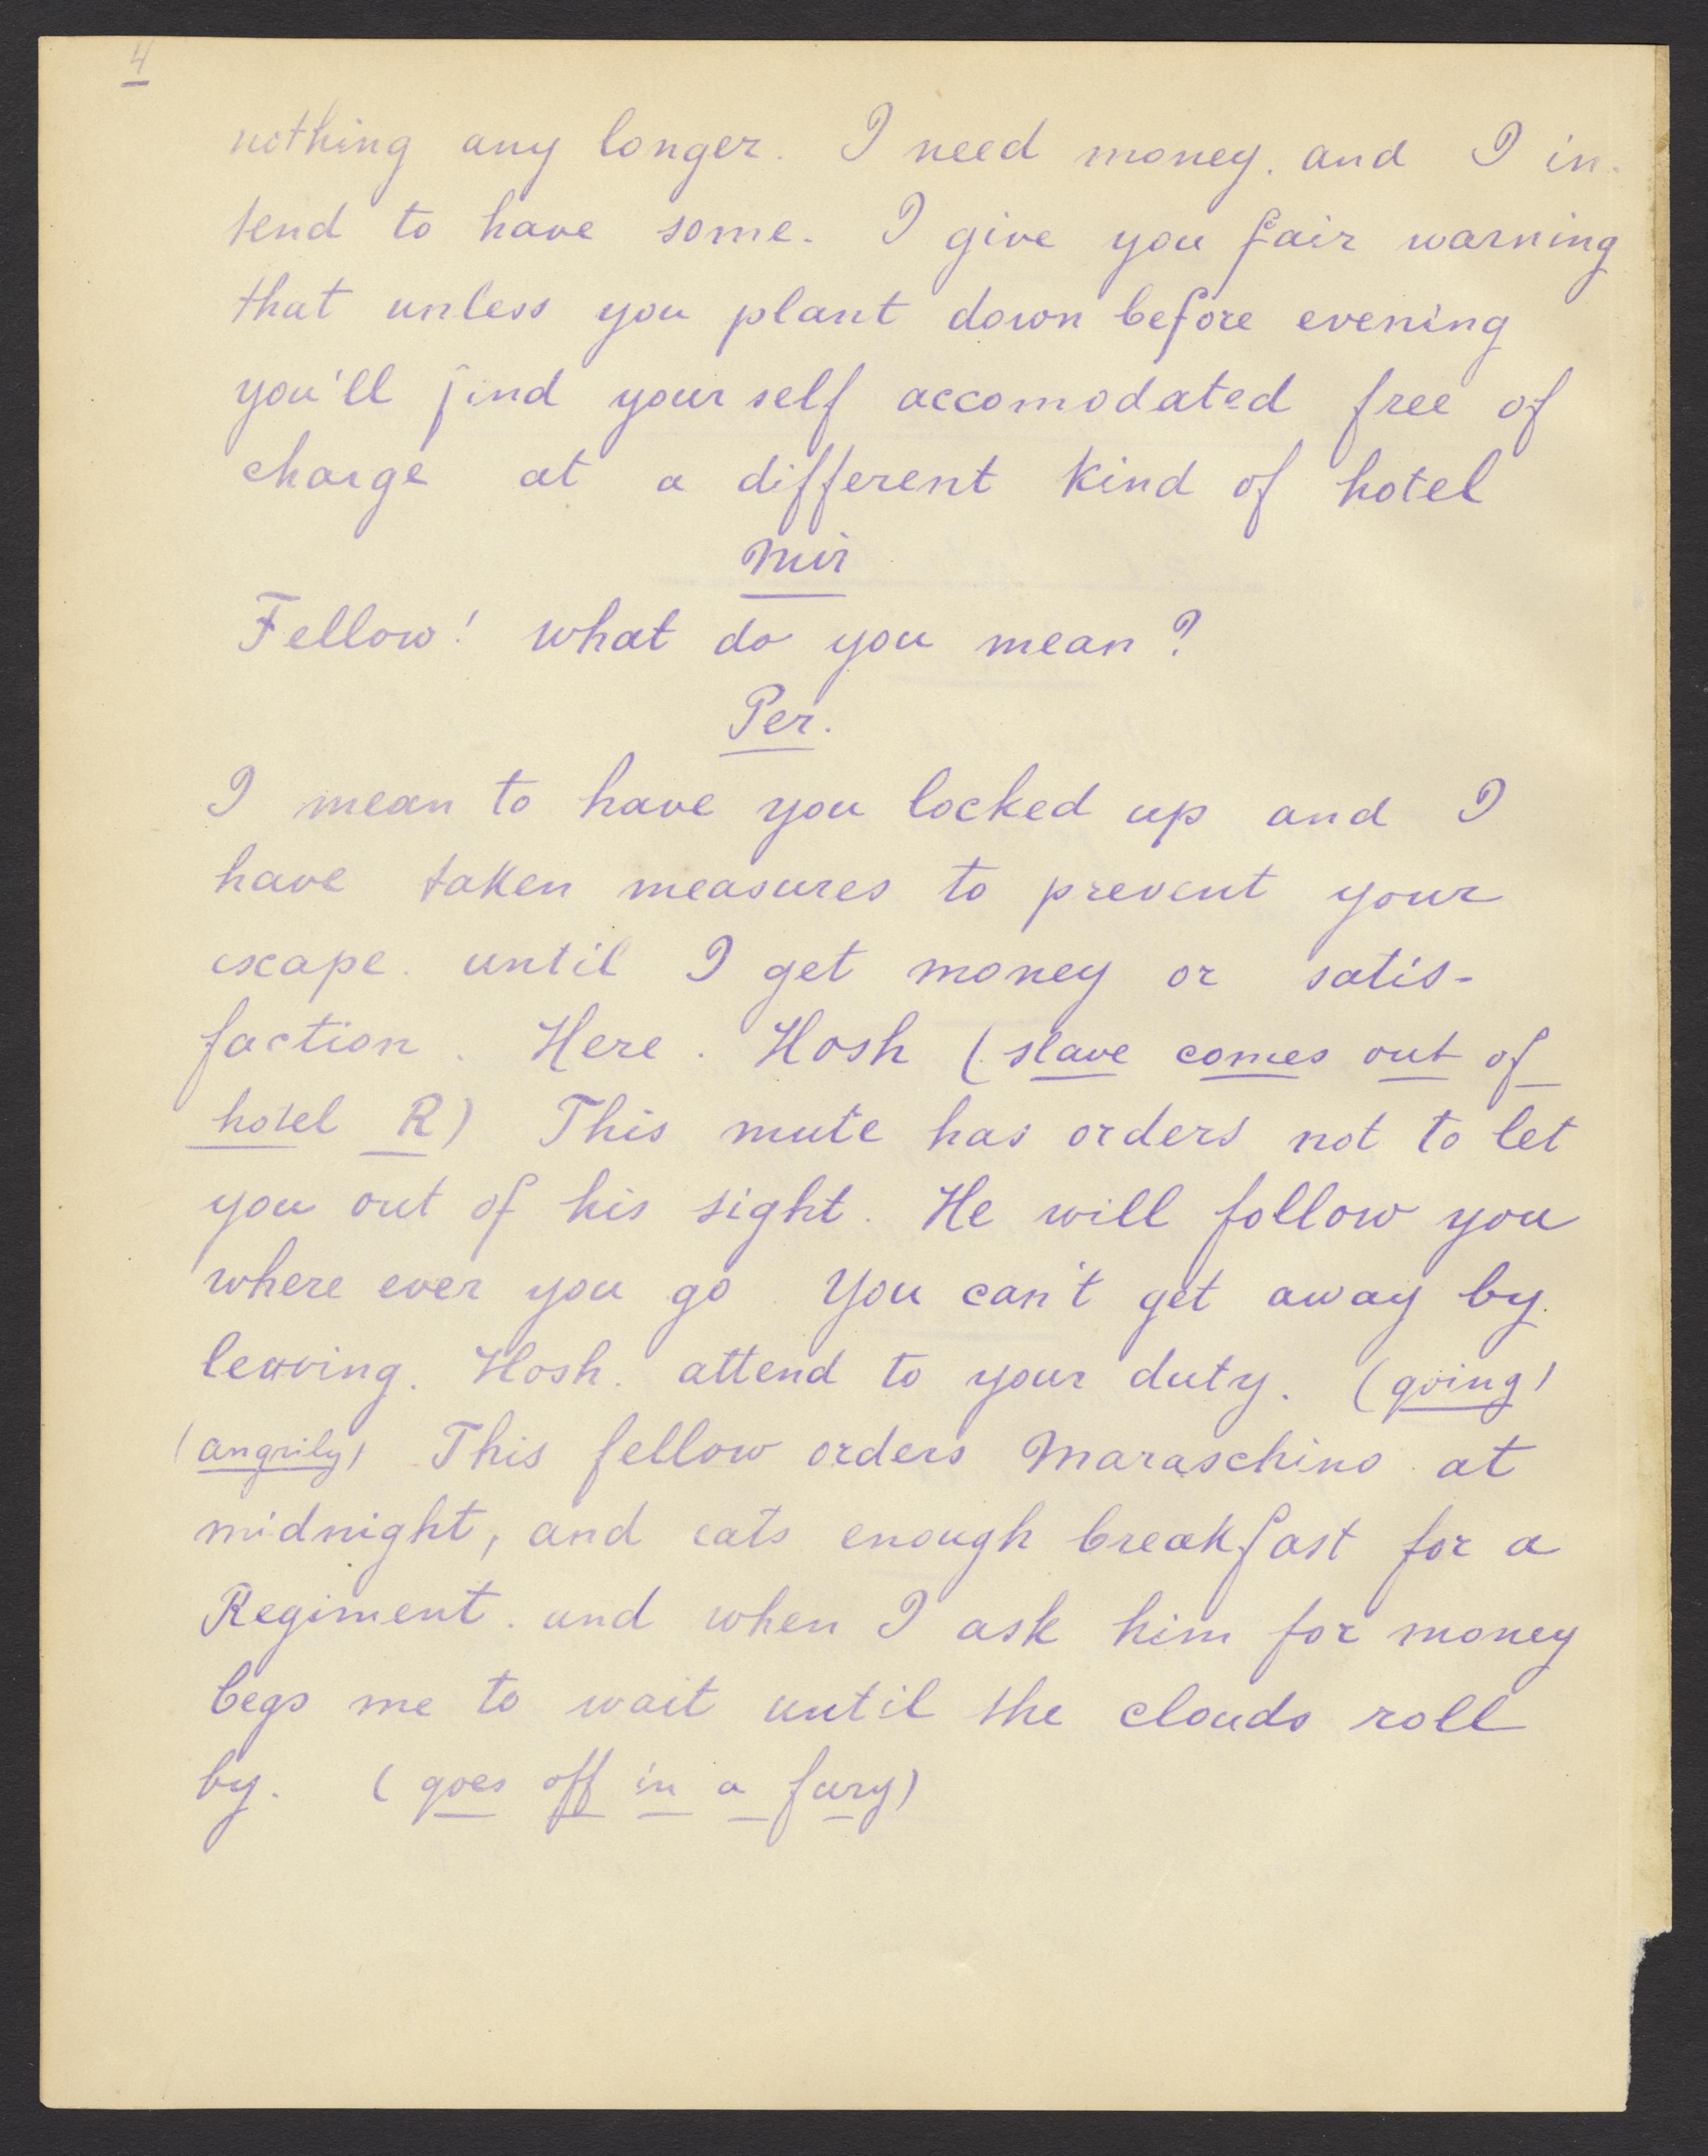 4
nothing any longer. I need money. and I in-
tend to have some. I give you fair warning
that unless you plant down before evening
you'll find yourself accomodated free of
charge at a different kind of hotel
Mir
Fellow! what do you mean?
Per.
I mean to have you locked up and I
have taken measures to prevent your
escape. until I get money or satis-
faction. Here. Hosh (slave comes out of
hotel R) This mute has orders not to let
you out of his sight. He will follow you
where ever you go. You can't get away by
leaving. Hosh. attend to your duty. (going)
(angrily) This fellow orders Maraschino at
midnight, and eats enough breakfast for a
Regiment. and when I ask him for money
begs me to wait until the clouds roll
by. (goes off in a fury)